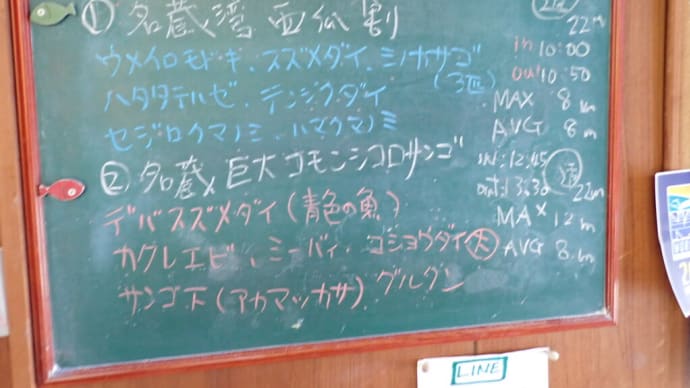 ① 名蔵湾 西瓜割
22m
ウメイロモドキ、スズメダイ、ミノカサゴ
(3匹)
in 10:00
out 10:50
ハタタテハゼ、テンジクダイ
MAX 8m
セジロクマノミ、ハマクマノミ
AVG 8m
② 名蔵 巨大コモンシコロサンゴ
IN:12:45
out:13:30
22m
デバスズメダイ(青色の魚)
MAX 12m
カクレエビ、ミーバイ、コショウダイ大
AVG 8m
サンゴ下(アカマツカサ) グルグン
LINE